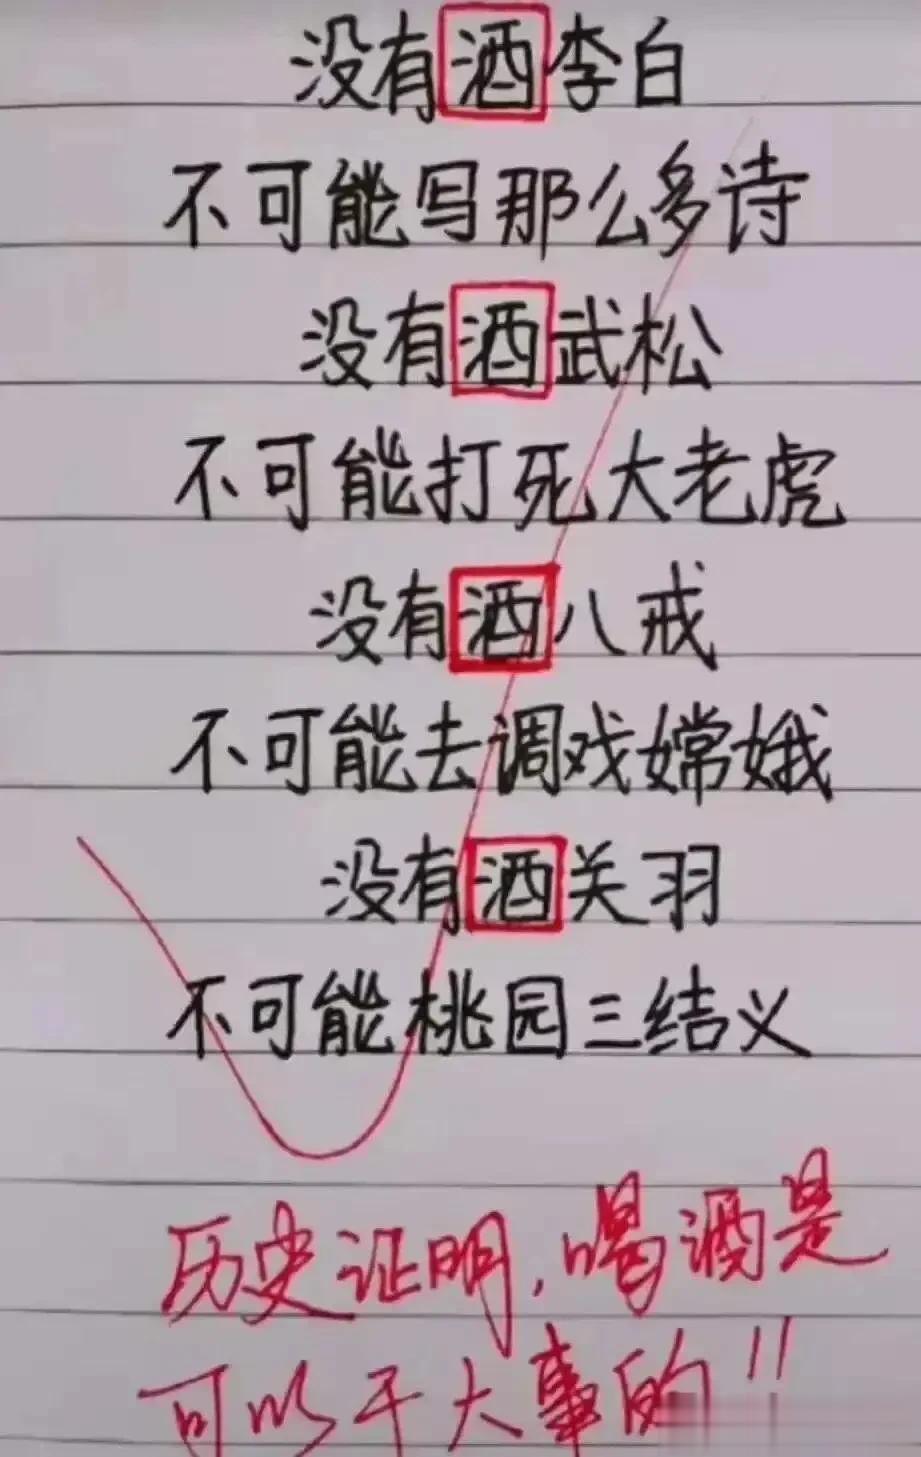 没有酒李白
不可能写那么多诗
没有酒武松
不可能打死大老虎
没有酒八戒
不可能去调戏嫦娥
没有酒关羽
不可能桃园三结义
历史证明，喝酒是
可以干大事的！！